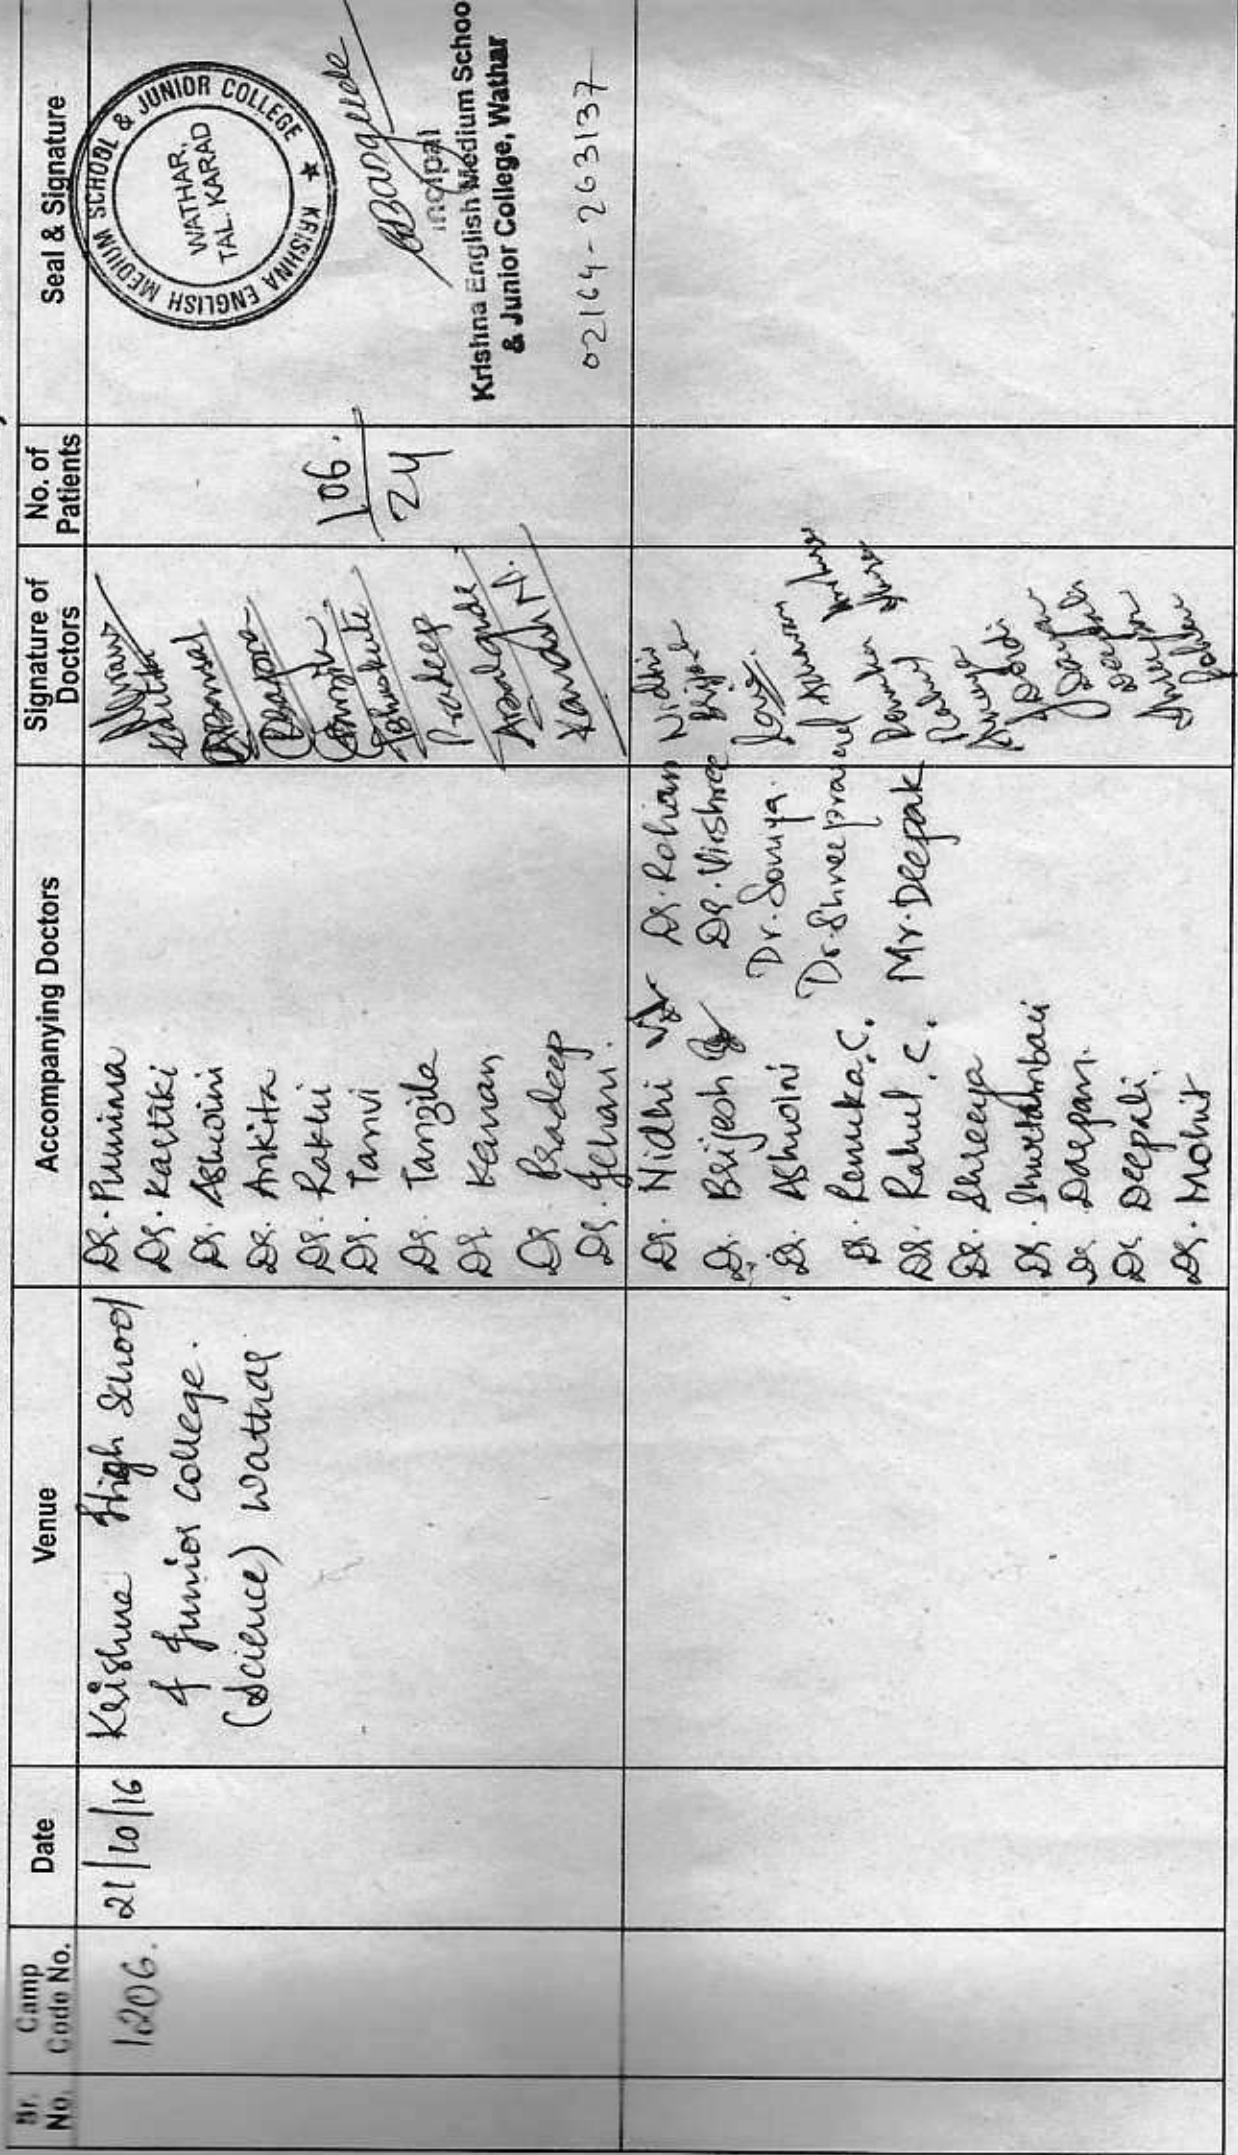 Sr. No.
Camp Code No.
Date
Venue
Accompanying Doctors
Signature of Doctors
No. of Patients
Seal & Signature
1206.
21/10/16
Krishna High School
& Junior College.
(Science) Wathar
Dr. Purnima
Dr. Kartiki
Dr. Ashwini
Dr. Ankita
Dr. Rakhi
Dr. Tanvi
Dr. Tanzila
Dr. Kenan
Dr. Pradeep
Dr. Jehan.
Kartiki
Pradeep
106.
24
KRISHNA ENGLISH MEDIUM SCHOOL & JUNIOR COLLEGE ★
WATHAR,
TAL. KARAD
incipal
Krishna English Medium Schoo
& Junior College, Wathar
02164-263137
Dr. Nidhi Dr. Rohan
Dr. Brijesh Dr. Virshree
Dr. Ashwini Dr. Soumya.
Dr. Renuka. C. Dr. Shreeprasad
Dr. Rahul. C. Mr. Deepak
Dr. Shreeya
Dr. Shwetambari
Dr. Darpan.
Dr. Deepali.
Dr. Mohit
Nidhi